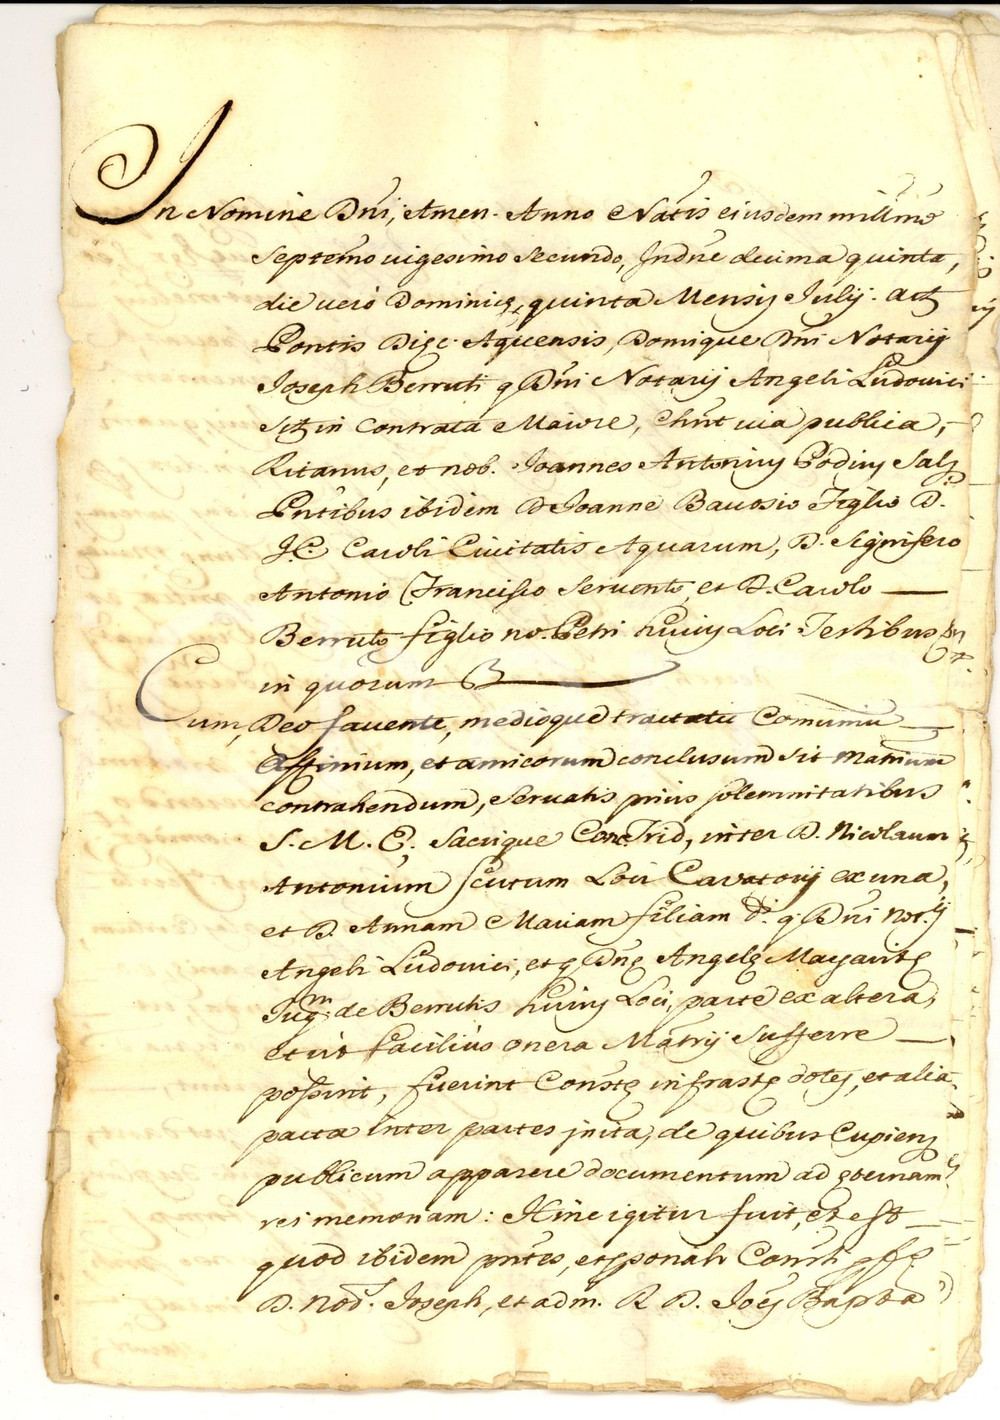 In Nomine Dni, Amen. Anno Natis eiusdem millmo
septemo vigesimo secundo, Indne decima quinta,
die vero Dominica, quinta Mensis Julij. act
Pontis Dioc. Aquensis, Domique Dni Notarij
Joseph Berruti q Dni Notarij Angeli Ludovici
sit in Contrata Maiore, via publica,
et nob. Joannes Antonius
Pntibus ibidem D Joanne Bavosio Figlio D.
J.C. Caroli Civitatis Aquarum, D. Signifero
Antonio Francisco Servento, et D. Carolo
Berruto figlio no. Petri huius Loci Testibus
in quorum
Cum, Deo favente, medioque tractatu Comuniu
Affinium, et amicorum conclusum sit Matrium
contrahendum, servatis prius solemnitatibus
S. M. E. Sacrique Conc. Trid, inter D. Nicolaum
Antonium Scutum Loci Cavatorij ex una,
et D. Annam Mariam filiam q Dni Not.ij
Angeli Ludovici, et q Dne Angele Margarite
Jug.m de Berrutis huius Loci, parte ex altera,
et ut facilius onera Matrij sufferre
possint, fuerint Conste infraste dotes, et alia
pacta inter partes inita, de quibus Cupiens
publicum apparere documentum ad eternam
rei memoriam: Hinc igitur fuit, et est
quod ibidem pntes, et psonalr Constti
D. Nod. Joseph, et adm. R D. Joes Bapta